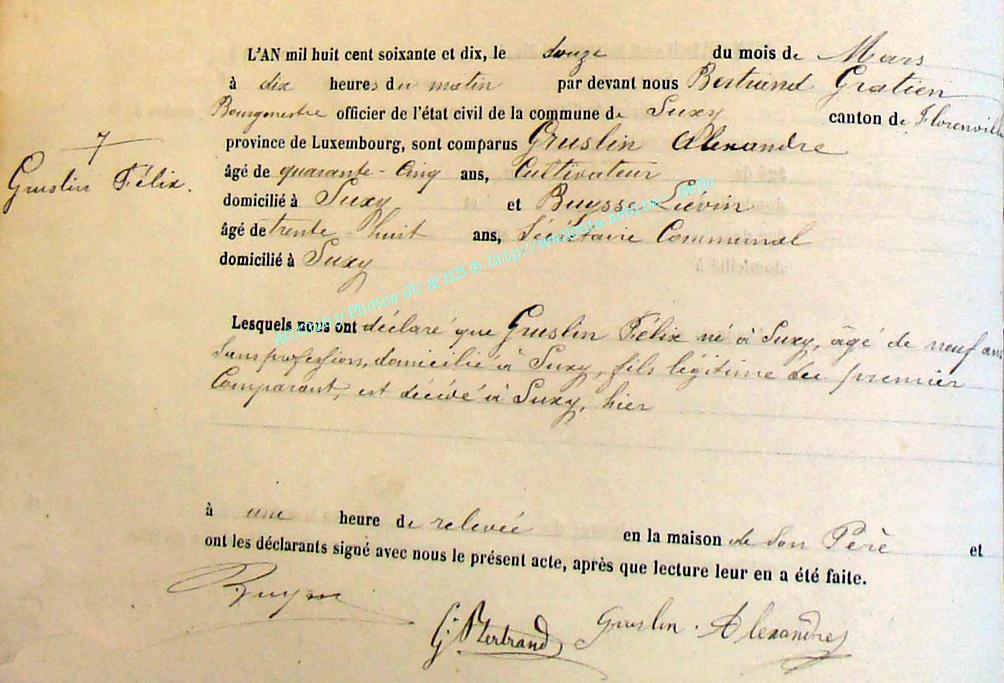 L'AN mil huit cent soixante et dix, le douze du mois de Mars
à dix heures du matin par devant nous Bertrand Gratien
Bourgmestre officier de l'état civil de la commune de Suxy canton de Florenville
province de Luxembourg, sont comparus Gruslin Alexandre
7
Gruslin Félix.
âgé de quarante-cinq ans, Cultivateur
domicilié à Suxy et Buysse Liévin
âgé de trente-huit ans, Secrétaire Communal
domicilié à Suxy
Photos JC & HB @ http://
Lesquels nous ont déclaré que Gruslin Félix né à Suxy, âgé de neuf ans
sans profession, domicilié à Suxy, fils légitime du premier
Comparant, est décédé à Suxy, hier
à une heure de relevée en la maison de son Père et
ont les déclarants signé avec nous le présent acte, après que lecture leur en a été faite.
G. Bertrand Gruslin Alexandre